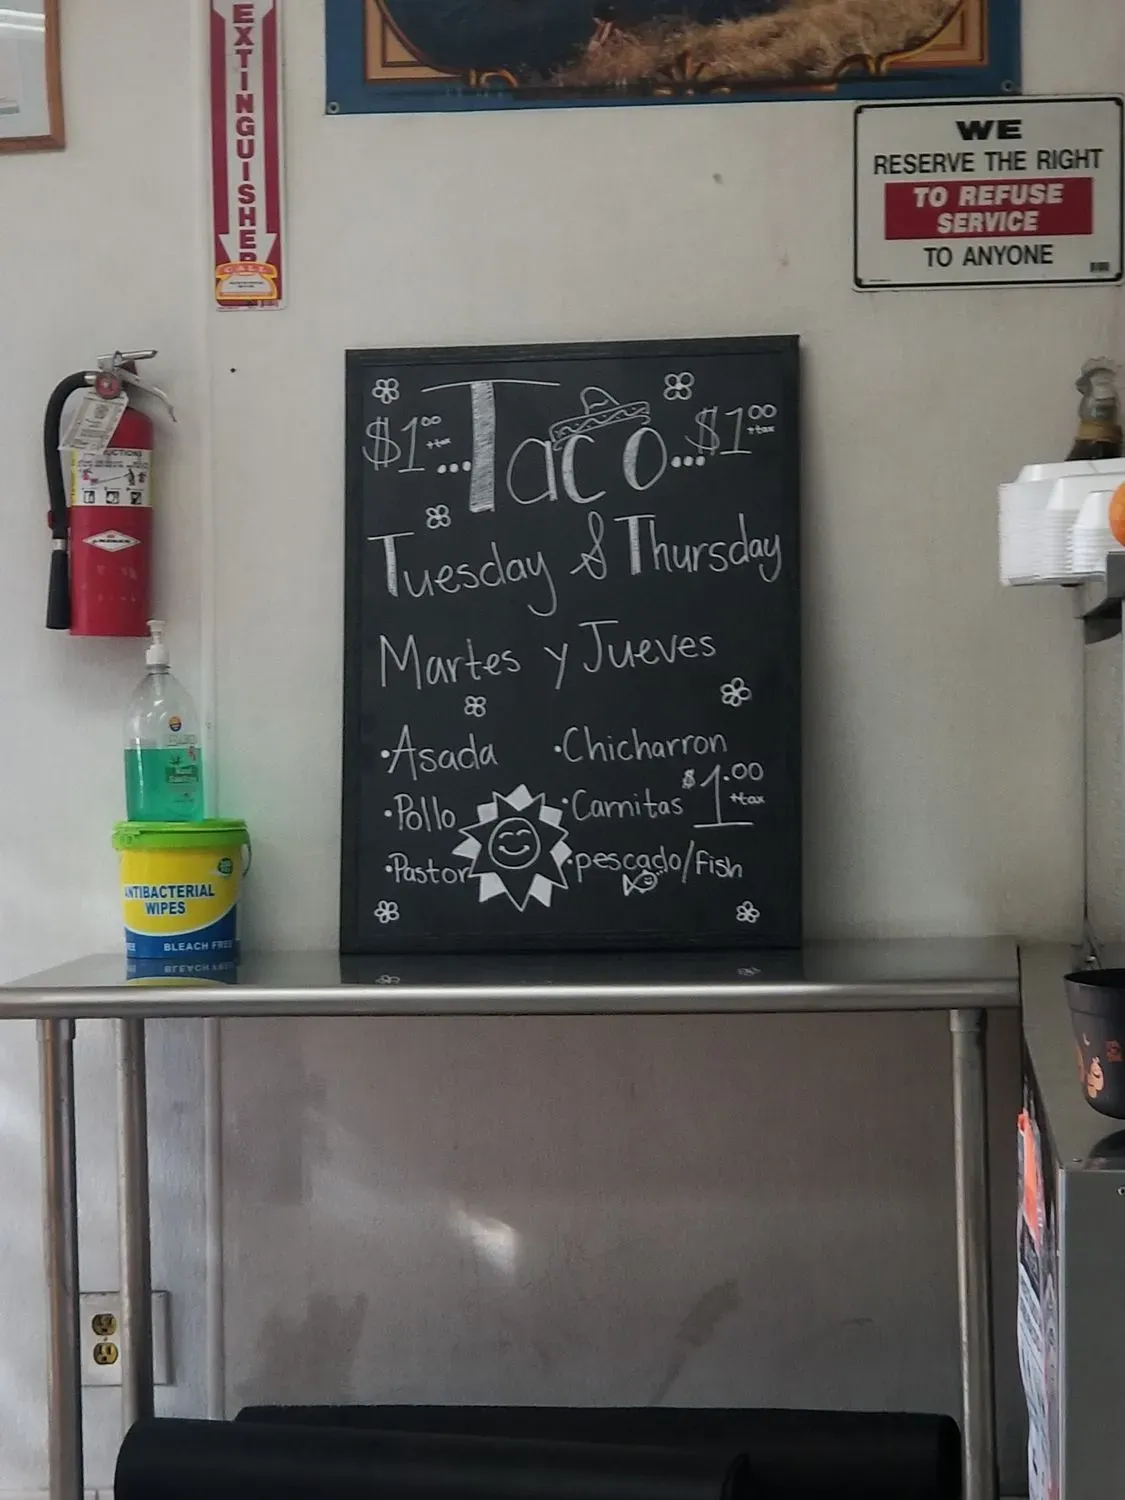 EXTINGUISHER
CALL
WE
RESERVE THE RIGHT
TO REFUSE
SERVICE
TO ANYONE
$1.00 +tax ...Taco... $1.00 +tax
Tuesday & Thursday
Martes y Jueves
•Asada •Chicharron
•Pollo •Carnitas $1.00 +tax
•Pastor •pescado/fish
ANTIBACTERIAL
WIPES
BLEACH FREE